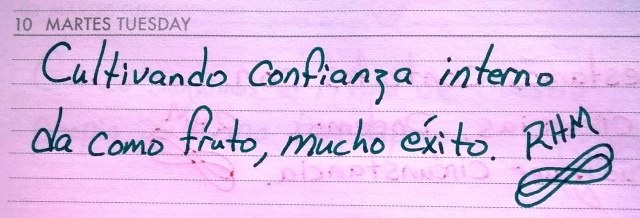 10 MARTES TUESDAY
Cultivando confianza interno
da como fruto, mucho éxito. RHM